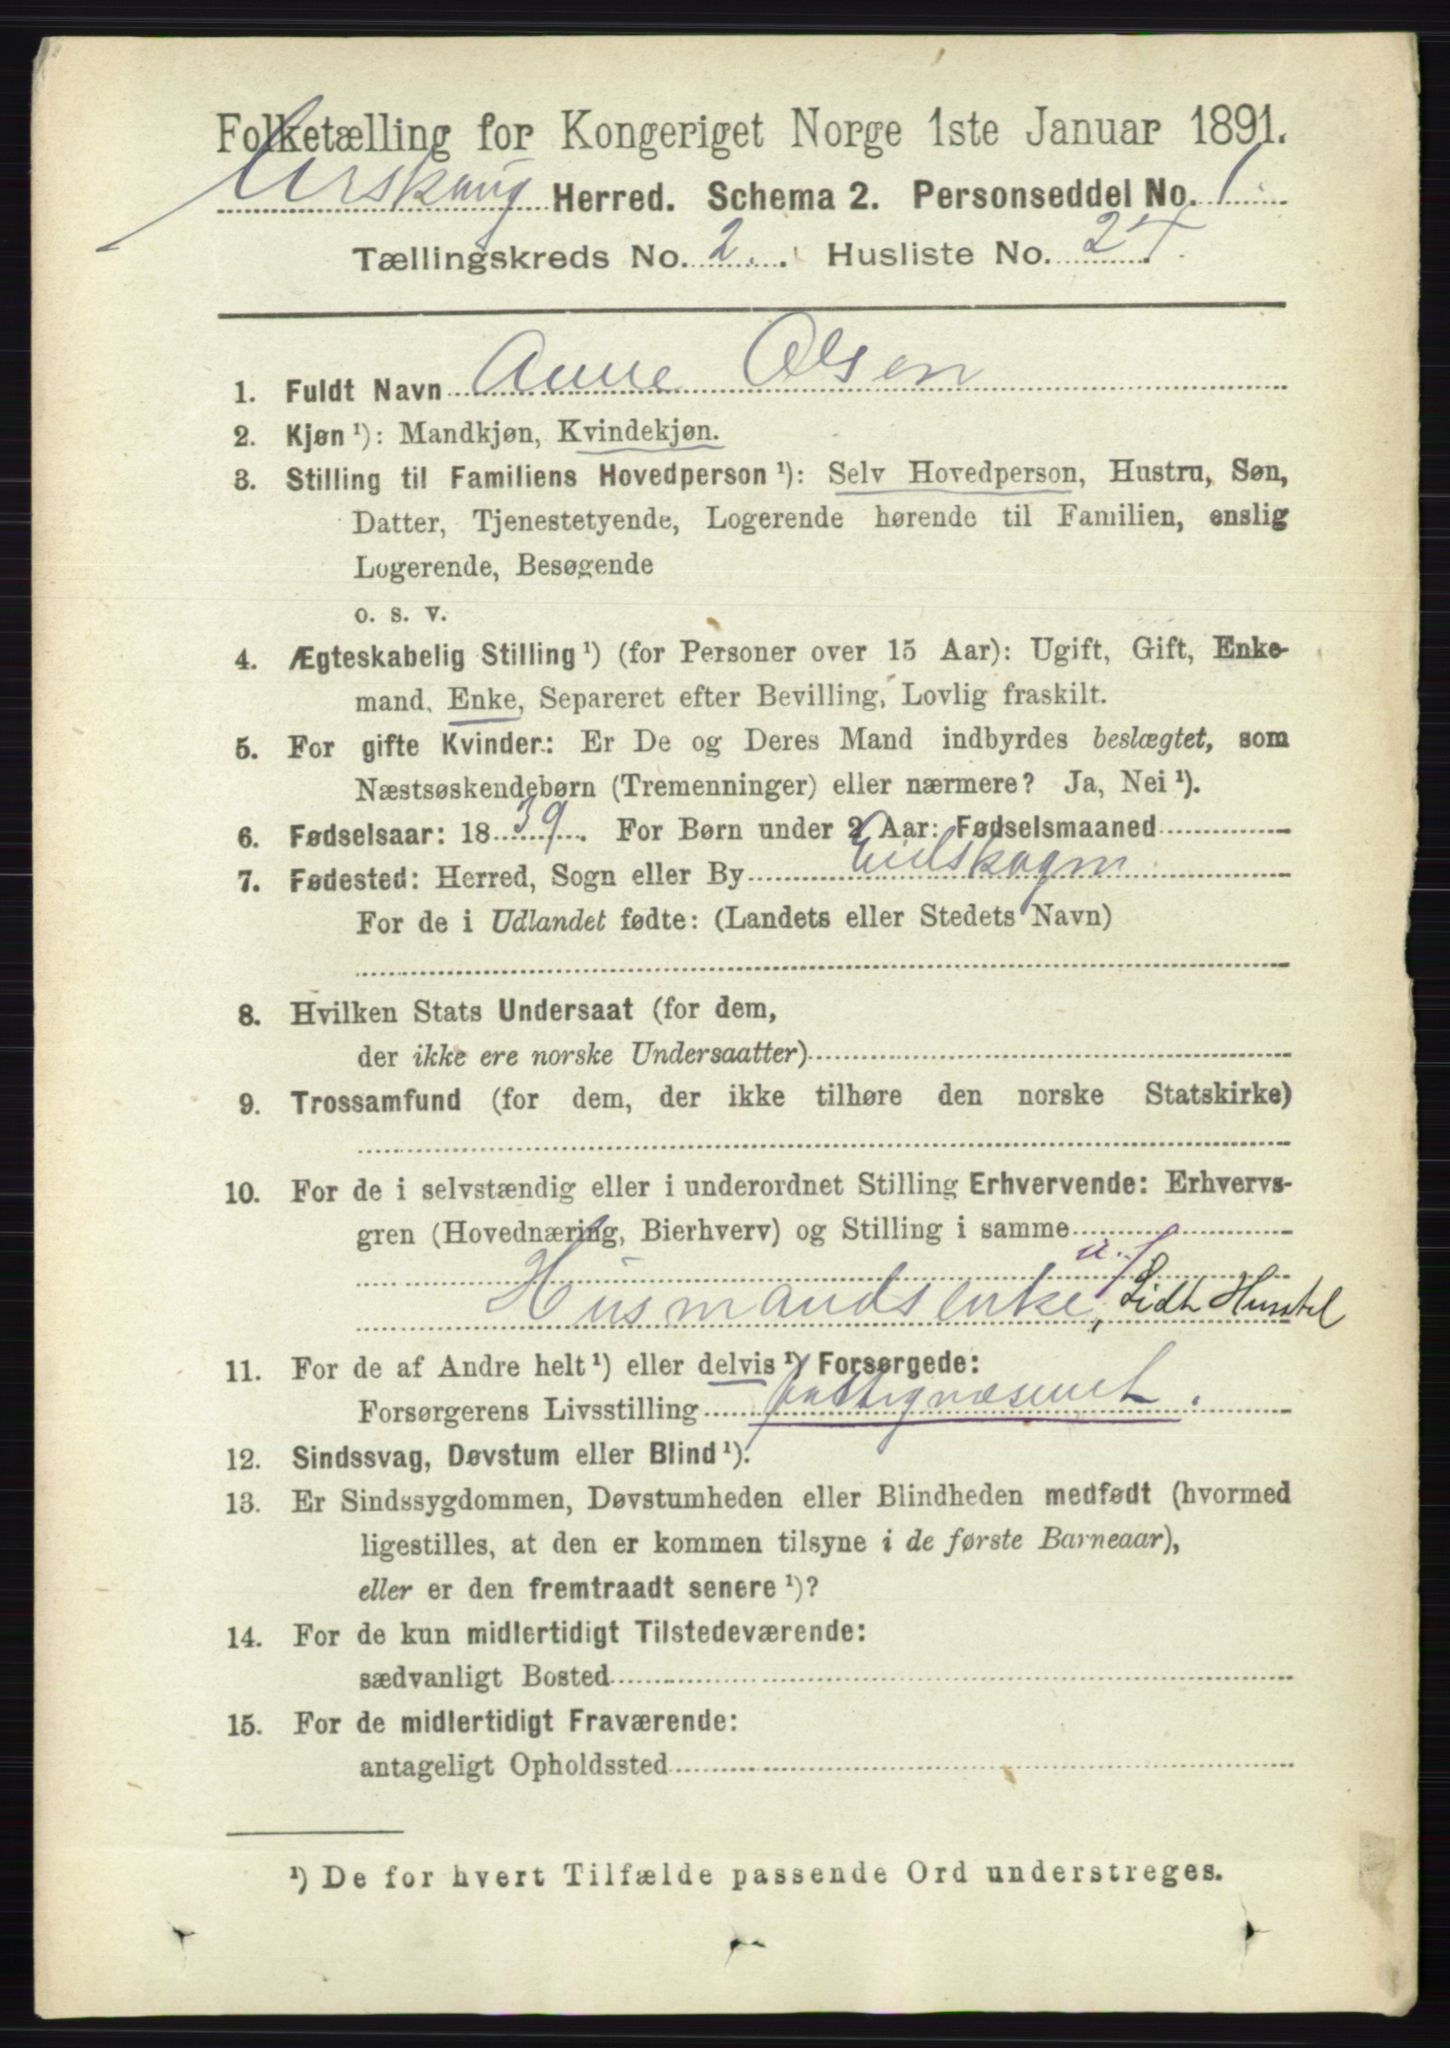 Folketælling for Kongeriget Norge 1ste Januar 1891.
Urskoug Herred. Schema 2. Personseddel No. 1
Tællingskreds No. 2. Husliste No. 24.
1. Fuldt Navn Anne Olsen
2. Kjøn ¹): Mandkjøn, Kvindekjøn.
3. Stilling til Familiens Hovedperson ¹): Selv Hovedperson, Hustru, Søn,
Datter, Tjenestetyende, Logerende hørende til Familien, enslig
Logerende, Besøgende
o. s. v.
4. Ægteskabelig Stilling ¹) (for Personer over 15 Aar): Ugift, Gift, Enke-
mand, Enke, Separeret efter Bevilling, Lovlig fraskilt.
5. For gifte Kvinder: Er De og Deres Mand indbyrdes beslægtet, som
Næstsøskendebørn (Tremenninger) eller nærmere? Ja, Nei ¹).
6. Fødselsaar: 1839. For Børn under 2 Aar: Fødselsmaaned
7. Fødested: Herred, Sogn eller By Eidskogn
For de i Udlandet fødte: (Landets eller Stedets Navn)
8. Hvilken Stats Undersaat (for dem,
der ikke ere norske Undersaatter)
9. Trossamfund (for dem, der ikke tilhøre den norske Statskirke)
10. For de i selvstændig eller i underordnet Stilling Erhvervende: Erhvervs-
gren (Hovednæring, Bierhverv) og Stilling i samme
Husmandsenke, u. J
11. For de af Andre helt ¹) eller delvis ¹) Forsørgede:
Forsørgerens Livsstilling fattigvæsenet.
12. Sindssvag, Døvstum eller Blind ¹).
13. Er Sindssygdommen, Døvstumheden eller Blindheden medfødt (hvormed
ligestilles, at den er kommen tilsyne i de første Barneaar),
eller er den fremtraadt senere ¹)?
14. For de kun midlertidigt Tilstedeværende:
sædvanligt Bosted
15. For de midlertidigt Fraværende:
antageligt Opholdssted
¹) De for hvert Tilfælde passende Ord understreges.